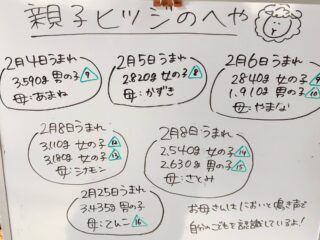 親子ヒツジのへや
2月4日うまれ
3.590g 男の子 7
母:あまね
2月5日うまれ
2.820g 女の子 8
母:かずき
2月6日うまれ
2.840g 女の子 9
1.910g 男の子 10
母:やまな
2月8日うまれ
3.110g 女の子 12
3.180g 女の子 13
母:シナモン
2月8日うまれ
2.540g 女の子 14
2.630g 男の子 15
母:さとみ
2月25日うまれ
3.435g 男の子
母:てんこ 16
お母さんはにおいと鳴き声で
自分のこどもを認識しているよ!